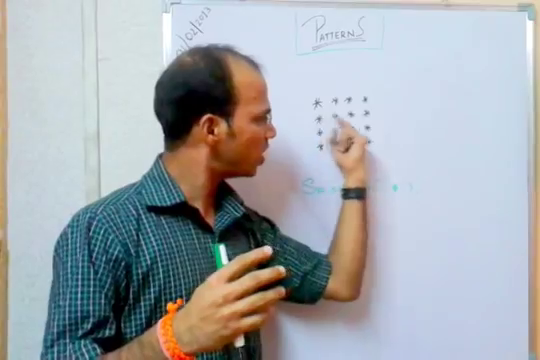 /02/2013
PATTERNS
* * * *
* * * *
* * * *
* * * *